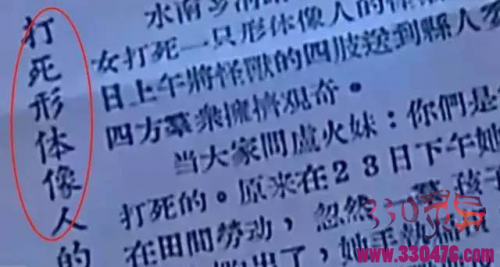 打死形体像人的
水南乡
女打死一只形体像人的怪
日上午將怪獸的四肢送到縣人
四方羣衆擁擠观奇。
当大家問盧火妹：你們是
打死的。原来在23日下午她
在田間劳动，忽然一羣孩子
出了，她手執
330
www.330476.com